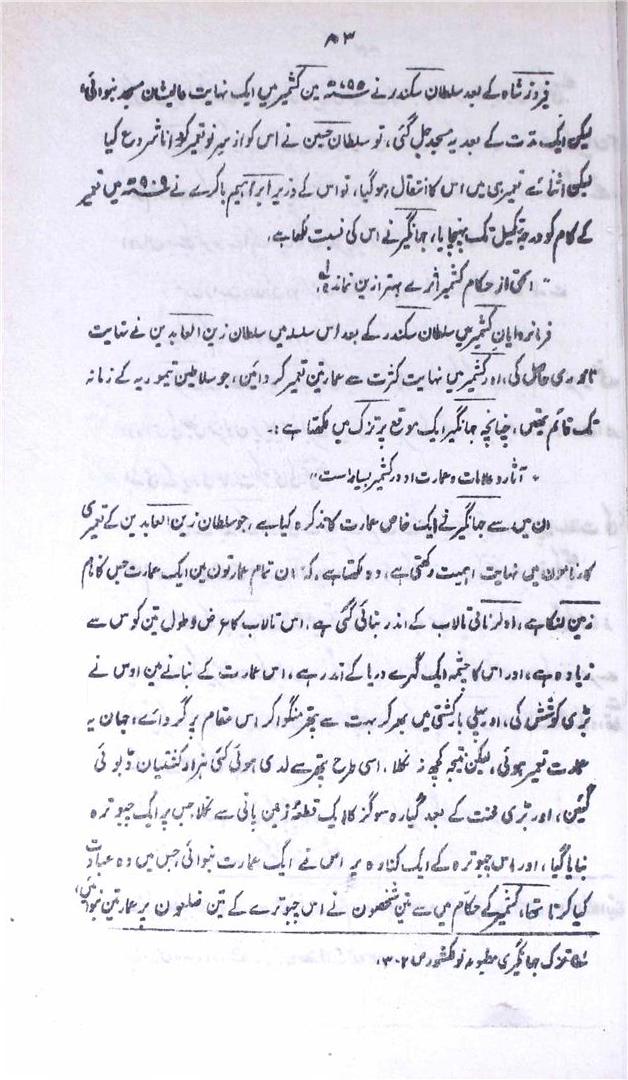 ۸۳
فیروز شاہ کے بعد سلطان سکندر نے ۷۹۵ھ مین کشمیر میں ایک نہایت عالیشان مسجد بنوائی،
لیکن ایک مدت کے بعد یہ مسجد جل گئی، تو سلطان حسین نے اس کو از سر نو تعمیر کرانا شروع کیا
لیکن اثنائے تعمیر ہی میں اس کا انتقال ہو گیا، تو اس کے وزیر ابراہیم باکرے نے ۹۰۹ھ میں تعمیر
کے کام کو درجۂ تکمیل تک پہنچایا، جہانگیر نے اس کی نسبت لکھا ہے،
"الحق از حکام کشمیر اثرے بہتر ازین نماندہ،"
فرمانروایان کشمیر میں سلطان سکندر کے بعد اس سلسلہ میں سلطان زین العابدین نے نہایت
ناموری حاصل کی، اور کشمیر میں نہایت کثرت سے عمارتین تعمیر کروائین، جو سلاطین تیموریہ کے زمانہ
تک قائم تھیں، چنانچہ جہانگیر ایک موقع پر تزک میں لکھتا ہے:۔
"آثار و علامات و عمارت او در کشمیر بسیار است"
ان میں سے جہانگیر نے ایک خاص عمارت کا تذکرہ کیا ہے، جو سلطان زین العابدین کے تعمیری
کارنامون میں نہایت اہمیت رکھتی ہے، وہ لکھتا ہے، کہ ان تمام عمارتون مین ایک عمارت جس کا نام
زین لنکا ہے، اولر نامی تالاب کے اندر بنائی گئی ہے، اس تالاب کا عرض و طول تین کوس سے
زیادہ ہے، اور اس کا چشمہ ایک گہرے دریا کے اندر ہے، اس عمارت کے بنانے مین اوس نے
بڑی کوشش کی، اور پہلی بار کشتی میں بھر کر بہت سے پتھر منگوا کر اس مقام پر گروائے، جہان یہ
عمارت تعمیر ہوئی، لیکن نتیجہ کچھ نہ نکلا، اسی طرح پتھر سے لدی ہوئی کئی ہزار کشتیان ڈبوئی
گئین، اور بڑی محنت کے بعد گیارہ سو گز کا ایک قطعۂ زمین پانی سے نکلا، جس پر ایک چبوترہ
بنایا گیا، اور اس چبوترہ کے ایک کنارہ پر اس نے ایک عمارت بنوائی، جس میں وہ عبادت
کیا کرتا تھا، کشمیر کے حکام میں سے تین شخصون نے اس چبوترے کے تین ضلعون پر عمارتین بنوائین،
تزک جہانگیری مطبوعہ نولکشور ص ۳۰۲،